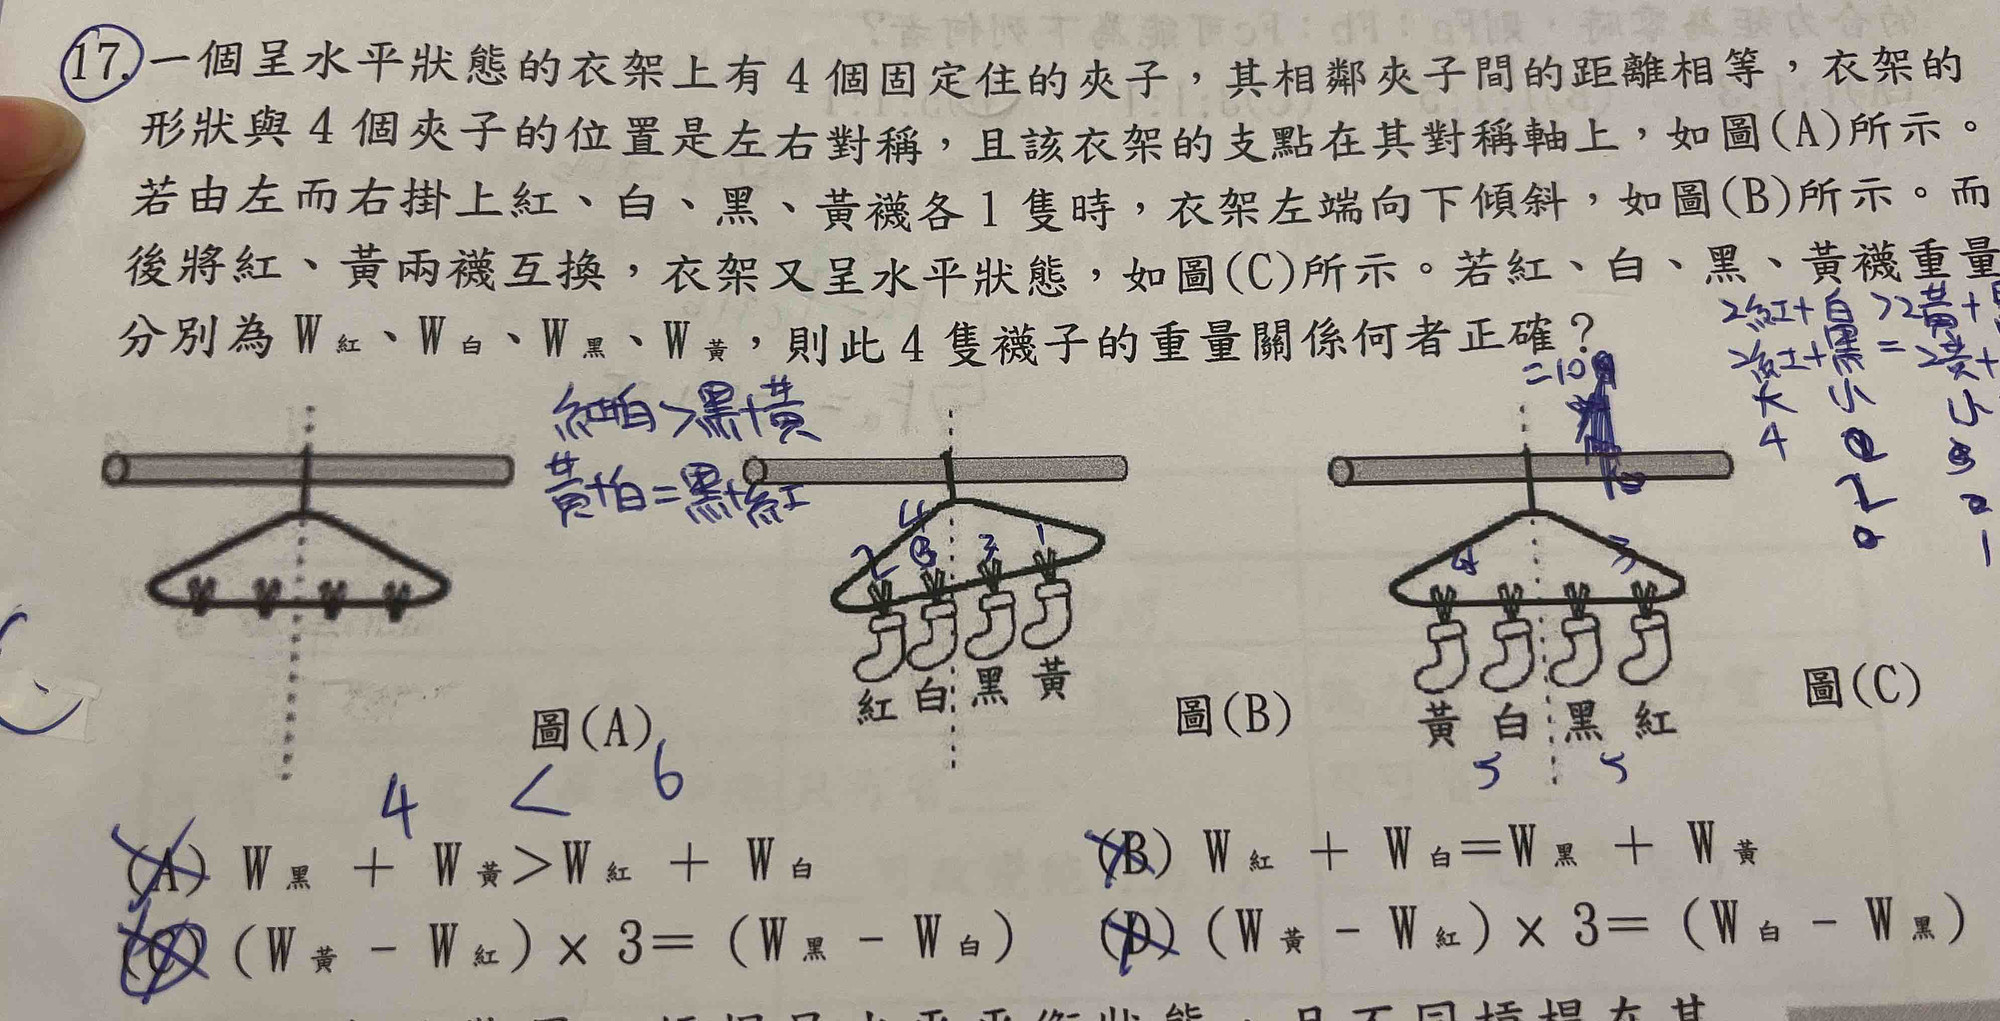 17. 一個呈水平狀態的衣架上有 4 個固定住的夾子，其相鄰夾子間的距離相等，衣架的
形狀與 4 個夾子的位置是左右對稱，且該衣架的支點在其對稱軸上，如圖(A)所示。
若由左而右掛上紅、白、黑、黃襪各 1 隻時，衣架左端向下傾斜，如圖(B)所示。而
後將紅、黃兩襪互換，衣架又呈水平狀態，如圖(C)所示。若紅、白、黑、黃襪重量
分別為 W紅、W白、W黑、W黃，則此 4 隻襪子的重量關係何者正確？
2紅+白>2黃+
2紅+黑=2黃+
大 小 小
4
=10
>黑+黃
黃+白=黑+紅
4
2 3 1
4 3
紅 白 黑 黃
黃 白 黑 紅
圖(A)
圖(B)
圖(C)
5 5
4 < 6
(A) W黑 + W黃>W紅 + W白
(B) W紅 + W白=W黑 + W黃
(C) (W黃 - W紅) × 3= (W黑 - W白)
(D) (W黃 - W紅) × 3= (W白 - W黑)